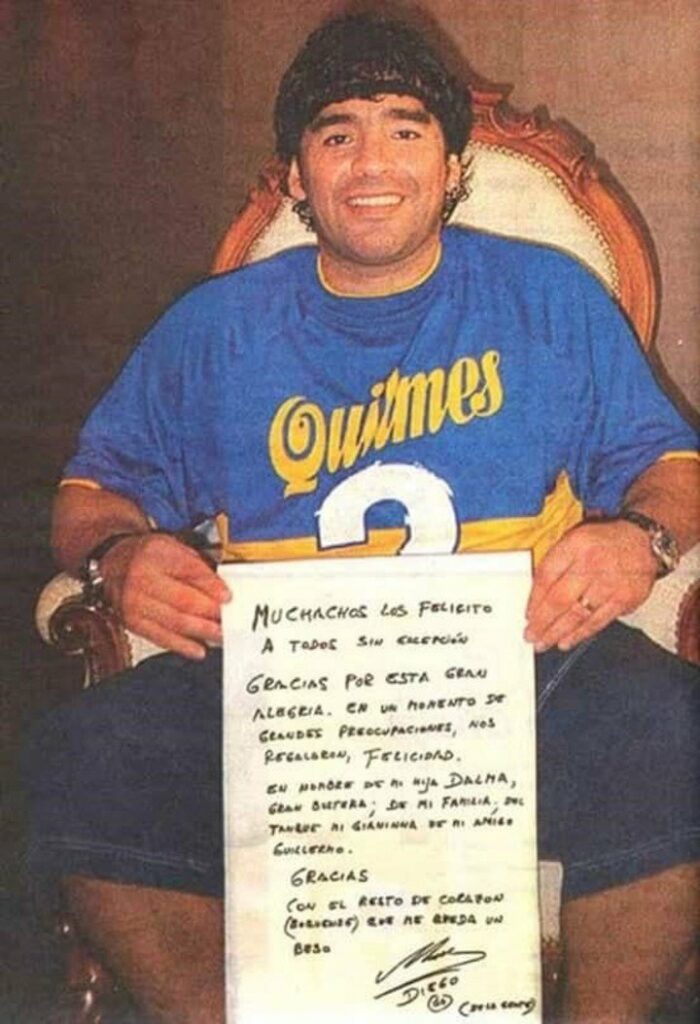 Quilmes
2
MUCHACHOS LOS FELICITO
A TODOS SIN EXCEPCIÓN
GRACIAS POR ESTA GRAN
ALEGRIA. EN UN MOMENTO DE
GRANDES PREOCUPACIONES, NOS
REGALARON, FELICIDAD.
EN NOMBRE DE MI HIJA DALMA,
GRAN BOSTERA; DE MI FAMILIA; DEL
TANQUE MI GIANINNA DE MI AMIGO
GUILLERMO.
GRACIAS
CON EL RESTO DE CORAZON
(BOQUENSE) QUE ME QUEDA UN
BESO
DIEGO
10
(DE LA GENTE)